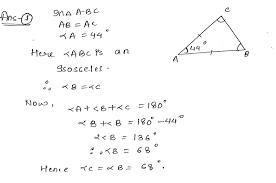 Ans-① In△ A·BC
AB = AC
∠A = 44°
Here ∠ABC is an
Isosceles.
∴ ∠B = ∠C
Now,
∠A + ∠B + ∠C = 180°
∠B + ∠B = 180° - 44°
2∠B = 136°
∴ ∠B = 68°
Hence ∠C = ∠B = 68°.
C
44°
A
B